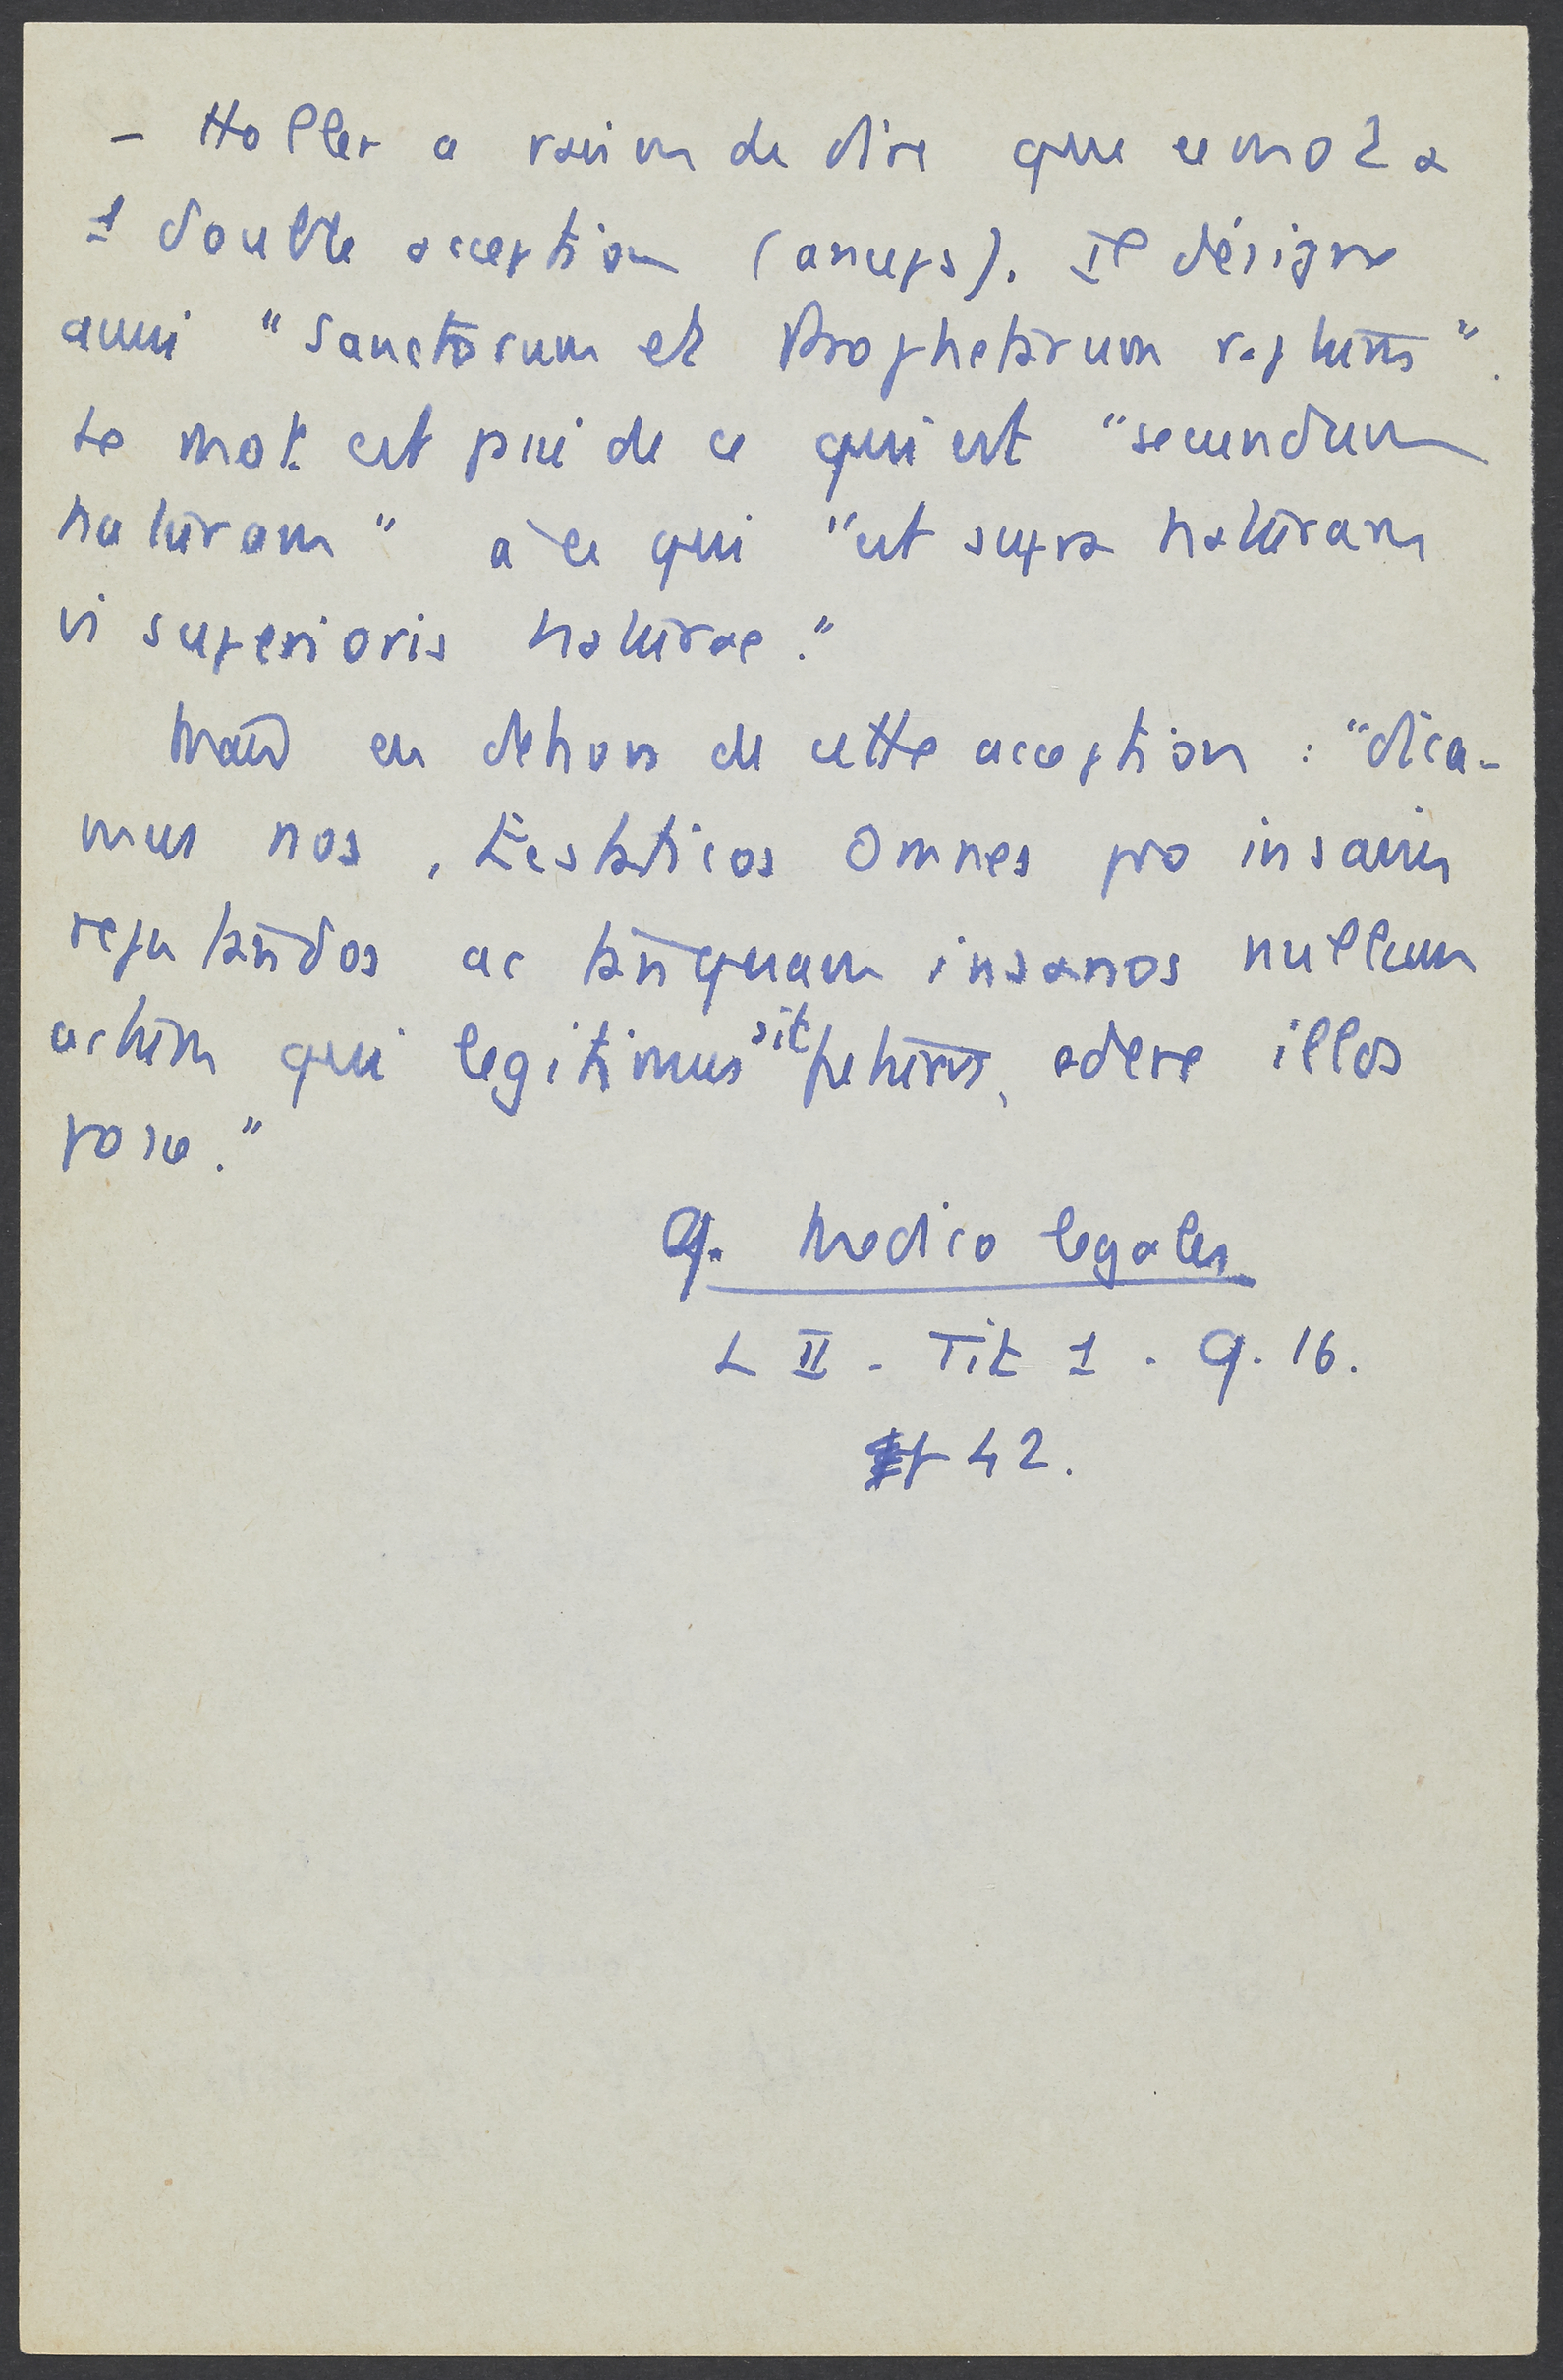 - Holler a raison de dire que ce mot a
1 double acception (anceps). Il désigne
aussi "Sanctorum et Prophetarum raptum".
Le mot est pris de ce qui est "secundum
naturam" à ce qui "est supra naturam
vi superioris naturae."
Mais en dehors de cette acception : "dica-
mus nos, Ecstaticos omnes pro insanis
reputandos ac tanquam insanos nullum
actum qui legitimus sit futurus, edere illos
posse."
Q. Medico legales
L II - Tit 1 . Q. 16.
p 42.